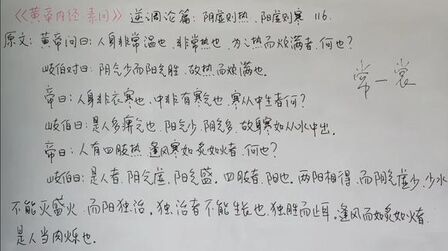 《黄帝内经 素问》 逆调论篇：阴虚则热、阳虚则寒 116.
原文：黄帝问曰：人身非常温也，非常热也，为之热而烦满者，何也？
岐伯对曰：阴气少而阳气胜，故热而烦满也。
常—裳
帝曰：人身非衣寒也，中非有寒气也，寒从中生者何？
岐伯曰：是人多痹气也，阳气少，阴气多，故身寒如从水中出。
帝曰：人有四肢热，逢风寒如炙如火者，何也？
岐伯曰：是人者，阴气虚，阳气盛。四肢者，阳也。两阳相得，而阴气虚少，少水
不能灭盛火，而阳独治。独治者不能生长也，独胜而止耳，逢风而如炙如火者，
是人当肉烁也。